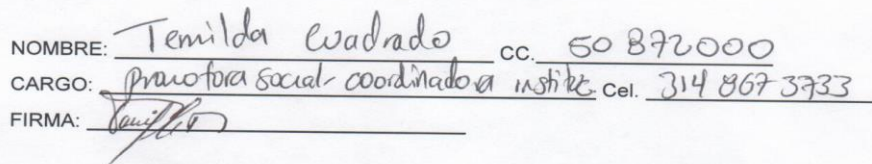 NOMBRE: Temilda Cuadrado CC. 50 872000
CARGO: promotora social - coordinadora institc Cel. 314 8673733
FIRMA: